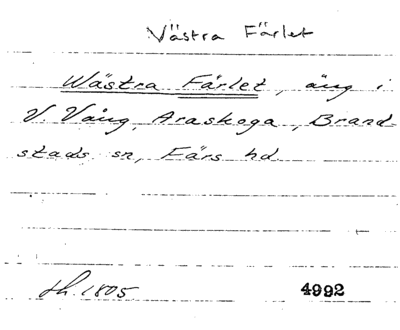 Västra Färlet
Wästra Färlet, äng i
V. Vång, Araskoga, Brand
stads sn, Färs hd
sh. 1805
4992